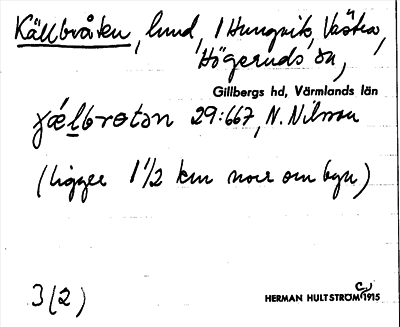 Källbråten, lund, 1 Hungvik, Västra,
Högeruds sn,
Gillbergs hd, Värmlands län
29:667, N. Nilsson
(ligger 1 1/2 km norr om byn)
3(2)
HERMAN HULTSTRÖM 1915